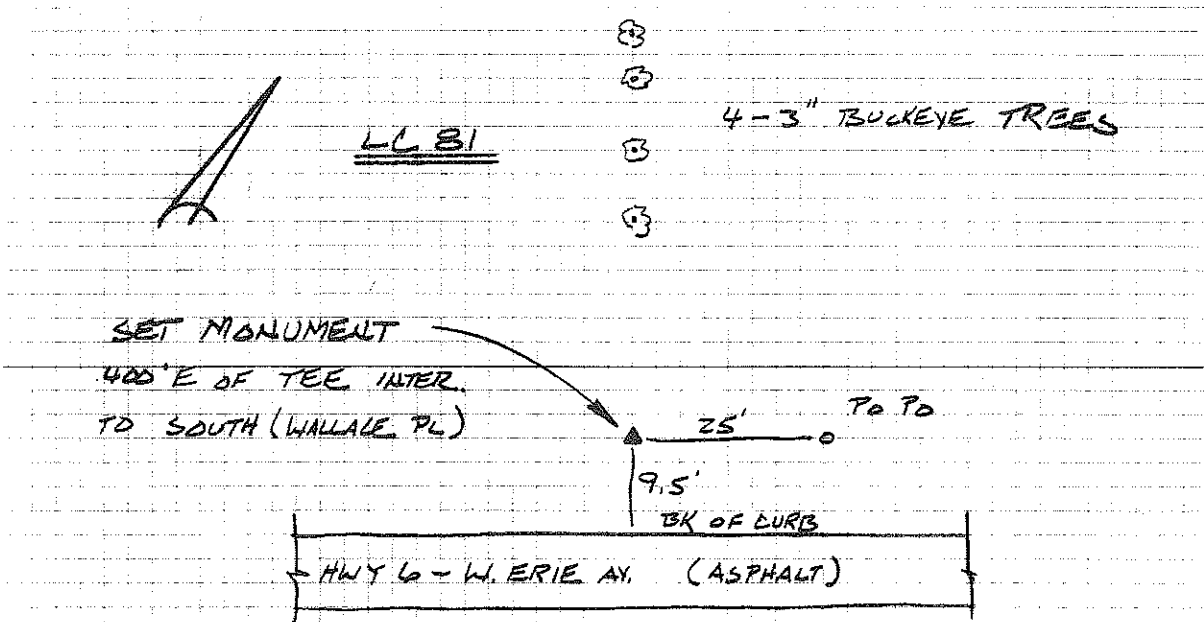 LC 81
4-3" BUCKEYE TREES
SET MONUMENT
400' E OF TEE INTER.
TO SOUTH (WALLACE PL)
25'
PO PO
9.5'
BK OF CURB
HWY 6 - W. ERIE AV. (ASPHALT)